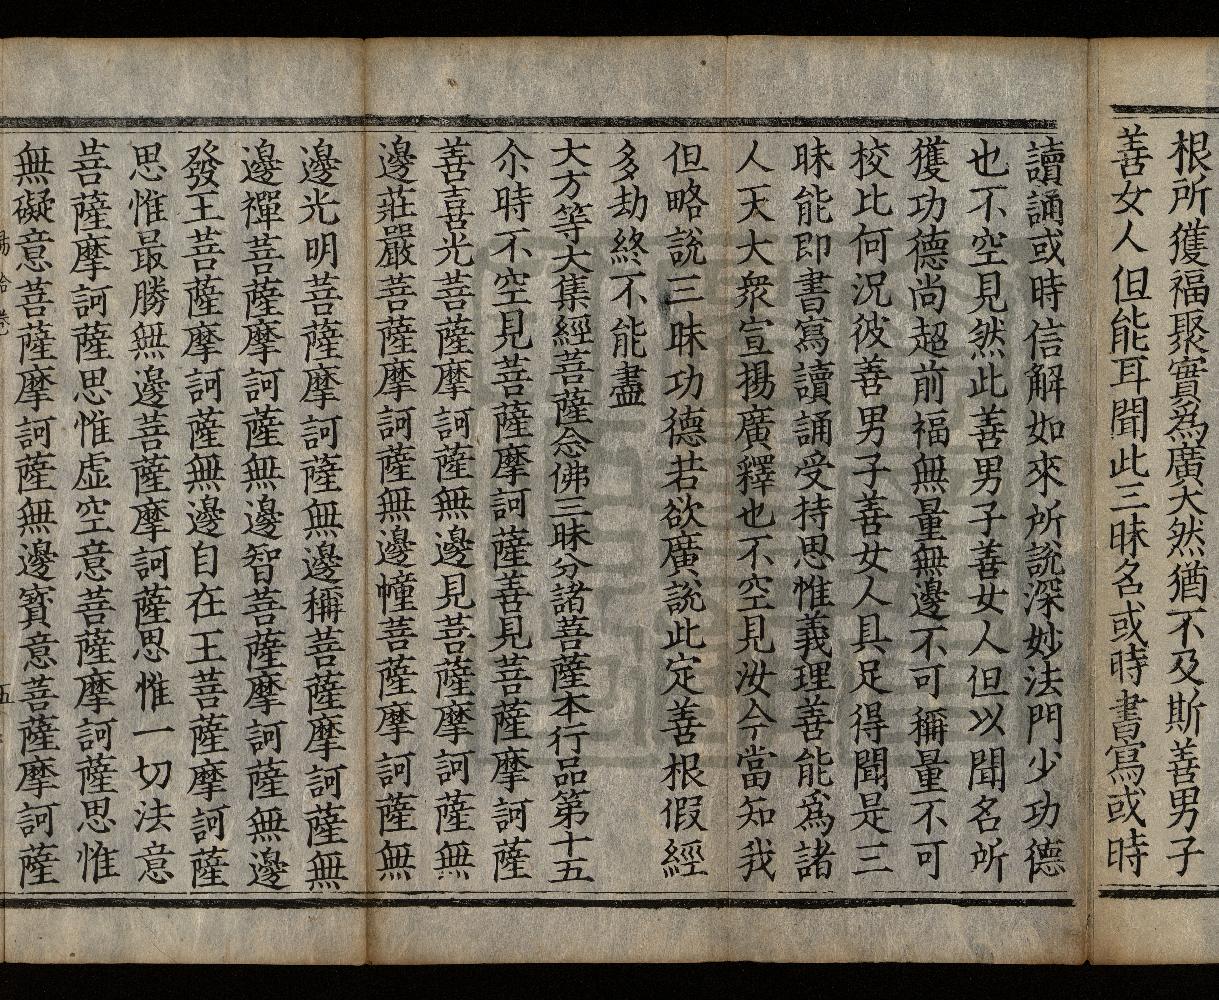 根所獲福聚實爲廣大然猶不及斯善男子
善女人但能耳聞此三昧名或時書寫或時
讀誦或時信解如來所說深妙法門少功德
也不空見然此善男子善女人但以聞名所
獲功德尚超前福無量無邊不可稱量不可
校比何況彼善男子善女人具足得聞是三
昧能即書寫讀誦受持思惟義理善能爲諸
人天大衆宣揚廣釋也不空見汝今當知我
但略說三昧功德若欲廣說此定善根假經
多劫終不能盡
大方等大集經菩薩念佛三昧分諸菩薩本行品第十五
尒時不空見菩薩摩訶薩善見菩薩摩訶薩
善喜光菩薩摩訶薩無邊見菩薩摩訶薩無
邊莊嚴菩薩摩訶薩無邊幢菩薩摩訶薩無
邊光明菩薩摩訶薩無邊稱菩薩摩訶薩無
邊禪菩薩摩訶薩無邊智菩薩摩訶薩無邊
發王菩薩摩訶薩無邊自在王菩薩摩訶薩
思惟最勝無邊菩薩摩訶薩思惟一切法意
菩薩摩訶薩思惟虛空意菩薩摩訶薩思惟
無礙意菩薩摩訶薩無邊寳意菩薩摩訶薩